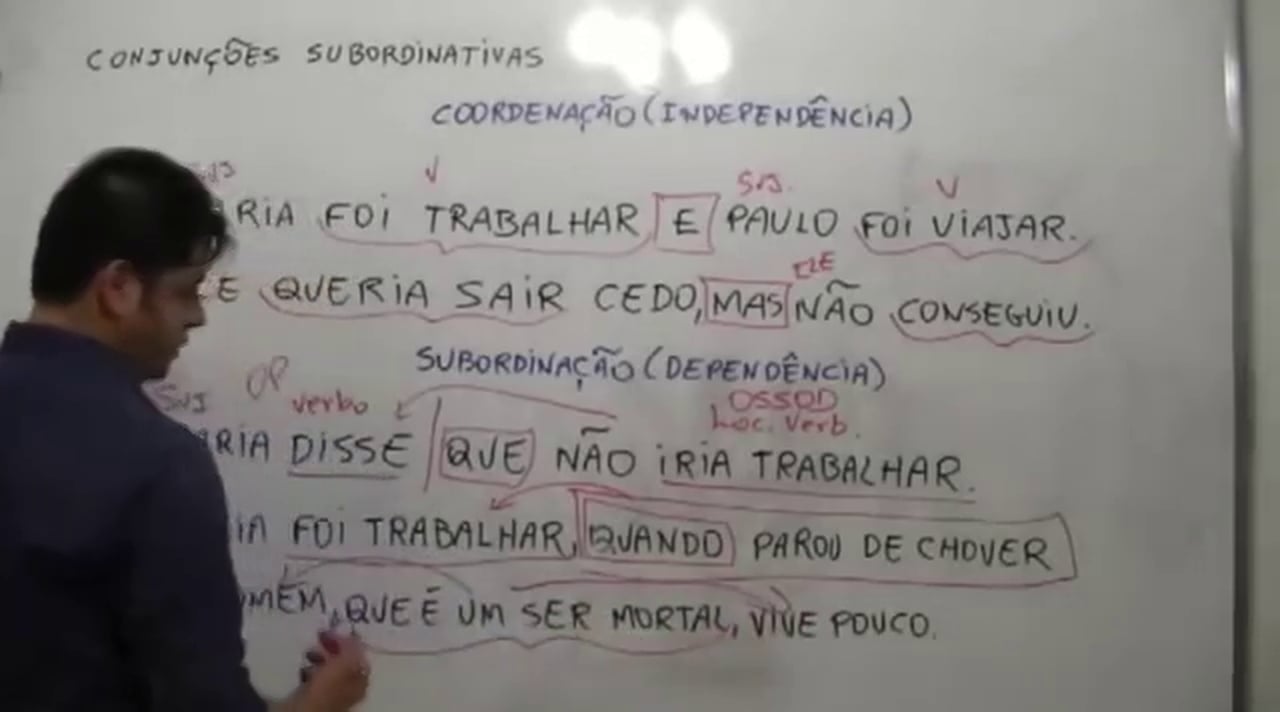 CONJUNÇÕES SUBORDINATIVAS
COORDENAÇÃO (INDEPENDÊNCIA)
SUJ V SUJ. V
RIA FOI TRABALHAR E PAULO FOI VIAJAR.
ELE
E QUERIA SAIR CEDO, MAS NÃO CONSEGUIU.
SUBORDINAÇÃO (DEPENDÊNCIA)
SUJ OP verbo OSSOD
Loc. Verb.
ARIA DISSE QUE NÃO IRIA TRABALHAR.
IA FOI TRABALHAR, QUANDO PAROU DE CHOVER
MEM, QUE É UM SER MORTAL, VIVE POUCO.